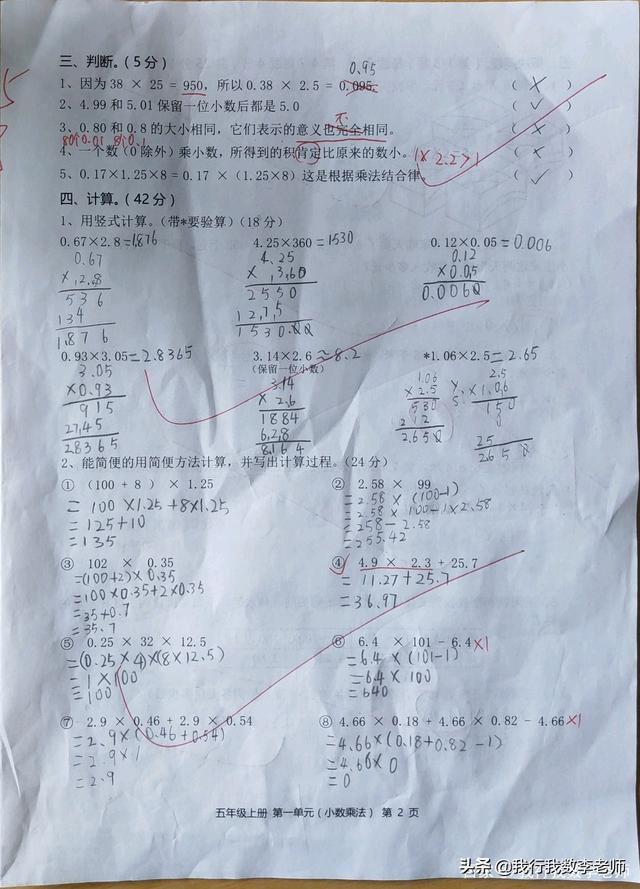 三、判断。（5分）
0.95
1、因为38 × 25 = 950，所以0.38 × 2.5 = 0.095。 （ × ）
2、4.99和5.01保留一位小数后都是5.0 （ ✓ ）
不
3、0.80和0.8的大小相同，它们表示的意义也完全相同。 （ × ）
80个0.01 8个0.1
4、一个数（0除外）乘小数，所得到的积肯定比原来的数小。 1×2.2>1 （ × ）
5、0.17×1.25×8＝0.17 ×（1.25×8）这是根据乘法结合律。 （ ✓ ）
四、计算。（42分）
1、用竖式计算。（带*要验算）（18分）
0.67×2.8=1.876 4.25×360=1530 0.12×0.05=0.006
0.67 4.25 0.12
×2.8 ×3.60 ×0.05
536 2550 0.0060
134 1275
1.876 1530.00
0.93×3.05=2.8365 3.14×2.6≈8.2 *1.06×2.5=2.65
（保留一位小数）
3.05 3.14 1.06 2.5
×0.93 ×2.6 ×2.5 ×1.06
915 1884 530 150
2745 628 212 25
28365 8.164 2.650 2.650
2、能简便的用简便方法计算，并写出计算过程。（24分）
① （100 + 8 ） × 1.25 ② 2.58 × 99
= 100×1.25+8×1.25 =2.58×(100-1)
=125+10 =2.58×100-1×2.58
=135 =258-2.58
=255.42
③ 102 × 0.35 ④ 4.9 × 2.3 + 25.7
=(100+2)×0.35 = 11.27+25.7
=100×0.35+2×0.35 =36.97
=35+0.7
=35.7
⑤ 0.25 × 32 × 12.5 ⑥ 6.4 × 101 - 6.4×1
=(0.25×4)×(8×12.5) =6.4×(101-1)
=1×100 =6.4×100
=100 =640
⑦ 2.9 × 0.46 + 2.9 × 0.54 ⑧ 4.66 × 0.18 + 4.66 × 0.82 - 4.66×1
=2.9×(0.46+0.54) =4.66×(0.18+0.82-1)
=2.9×1 =4.66×0
=2.9 =0
五年级上册 第一单元（小数乘法） 第 2 页
头条 @我行我数李老师